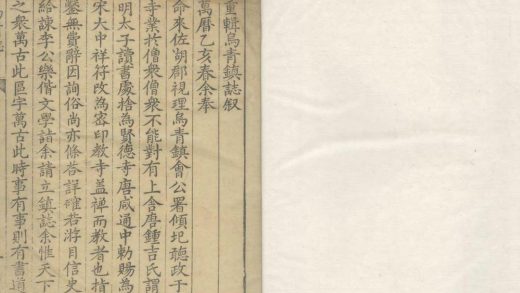 重輯烏青鎮誌叙
萬曆乙亥春余奉
命來佐胡郡視理烏青鎮會公署傾圯聽政于
寺業於僧衆僧衆不能對有上舍唐鍾吉氏謂
明太子讀書處捨為賢德寺唐咸通中勑賜為
宋大中祥符改為密印教寺盖禅而教者也指
鑿無費辭因詢俗尚亦條荅詳確若游目信史
給諫李公樂偕文學請余請立鎮誌余惟天下
之衆萬古此區宇萬古此時事有事則有書道